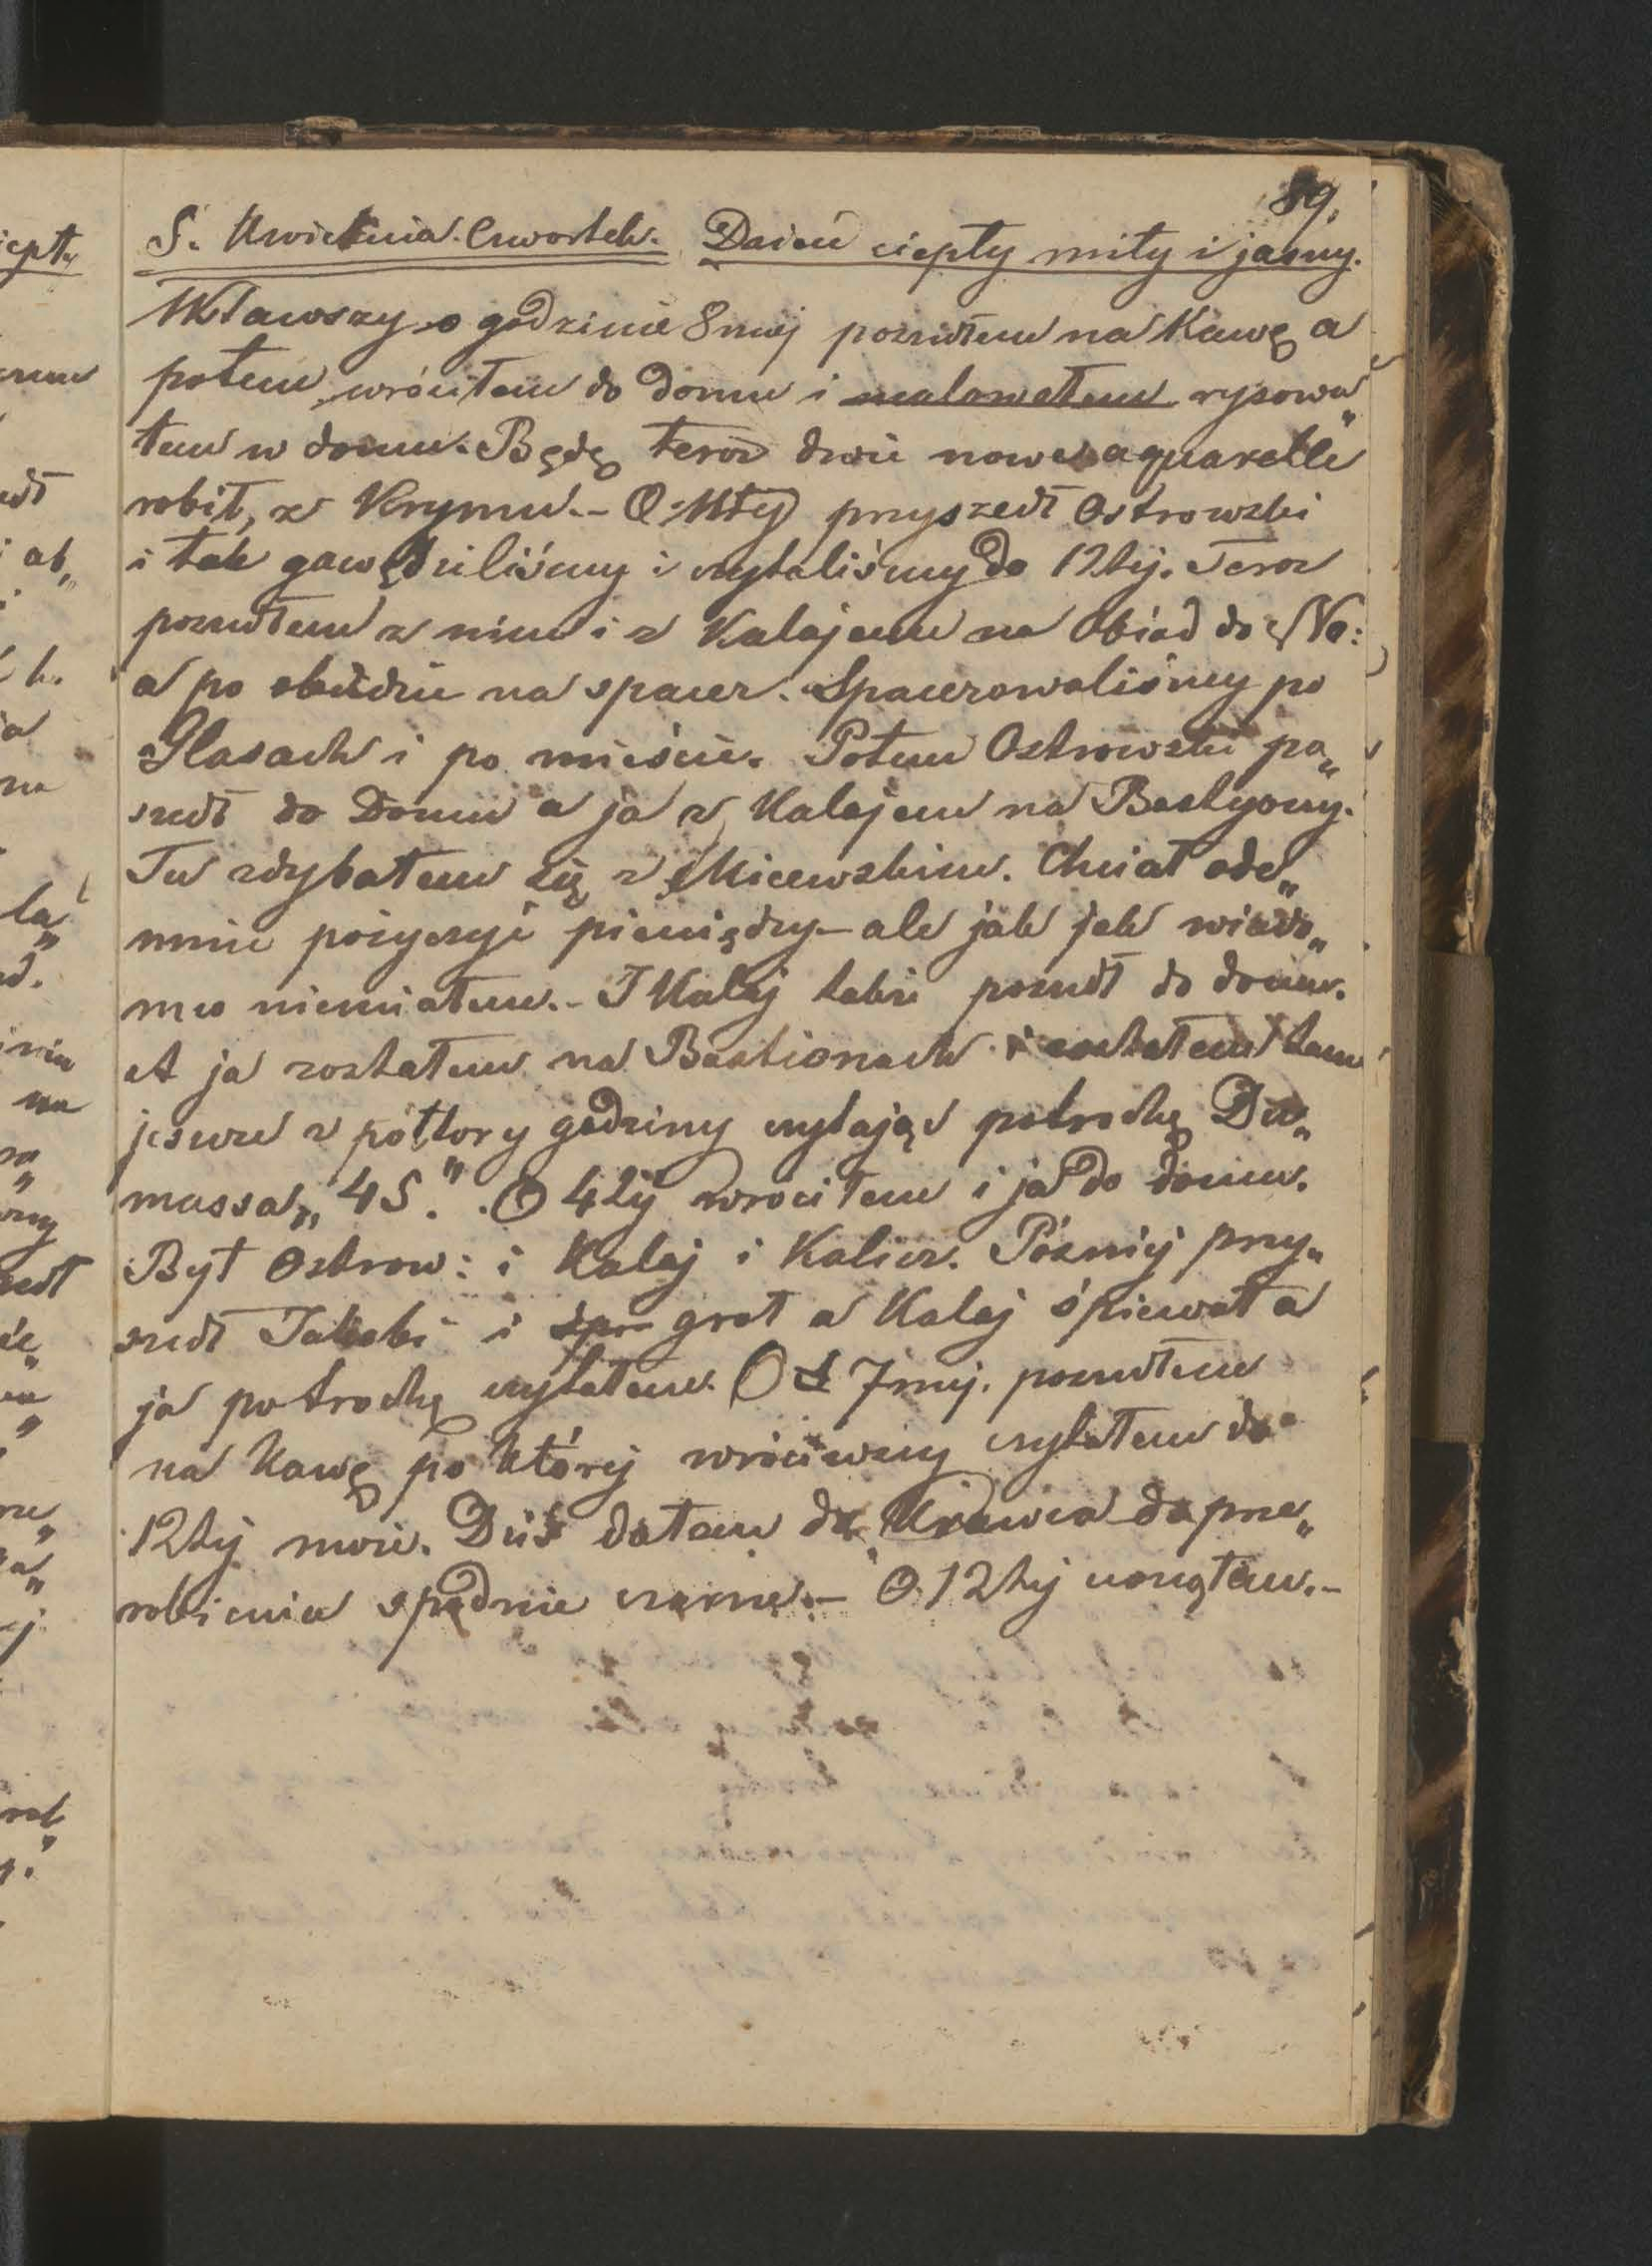 89.
5. Kwietnia. Czwartek. Dzień ciepły miły i jasny.
Wstawszy o godzinie 8mej poszedłem na Kawę a
potem wróciłem do domu i malowałem rysowa„
łem w domu. Będę teraz dwie nowe aquarelle
robił, z Krymu. – O 11tej przyszedł Ostrowski
i tak gawędziliśmy i czytaliśmy do 12tej. Teraz
poszedłem z nim i z Kalajem na Obiad do Na:
a po obiedzie na spacer. Spacerowaliśmy po
Glasach i po mieście. Potem Ostrowski po„
szedł do Domu a ja z Kalajem na Bastyony.
Tu zdybałem się z Micewskim. Chciał ode„
mnie pożyczyć pieniędzy – ale jak jak wiado„
mo niemiałem. – I Kalaj także poszedł do domu.
A ja zostałem na Bastionach i zostałem tam
jeszcze z półtory godziny czytając potrochę Du„
massa „45.". O 4tej wróciłem i ja do domu.
Był Ostrow: i Kalaj i Kalicz. Pózniej przy„
szedł Jakobi i śpie grał a Kalaj śpiewał a
ja potrochę czytałem. O 7mej. poszedłem
na Kawę po której wróciwszy czytałem do
12tej nocie. Dziś dałem do Krawca do prze„
robienia spodnie czarne. – O 12tej usnąłem. –